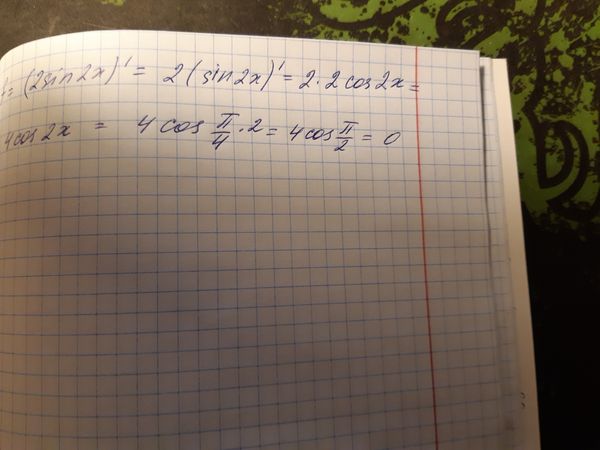 = (2sin2x)' = 2(sin2x)' = 2·2cos2x =
4cos2x = 4cos π/4 · 2 = 4cos π/2 = 0